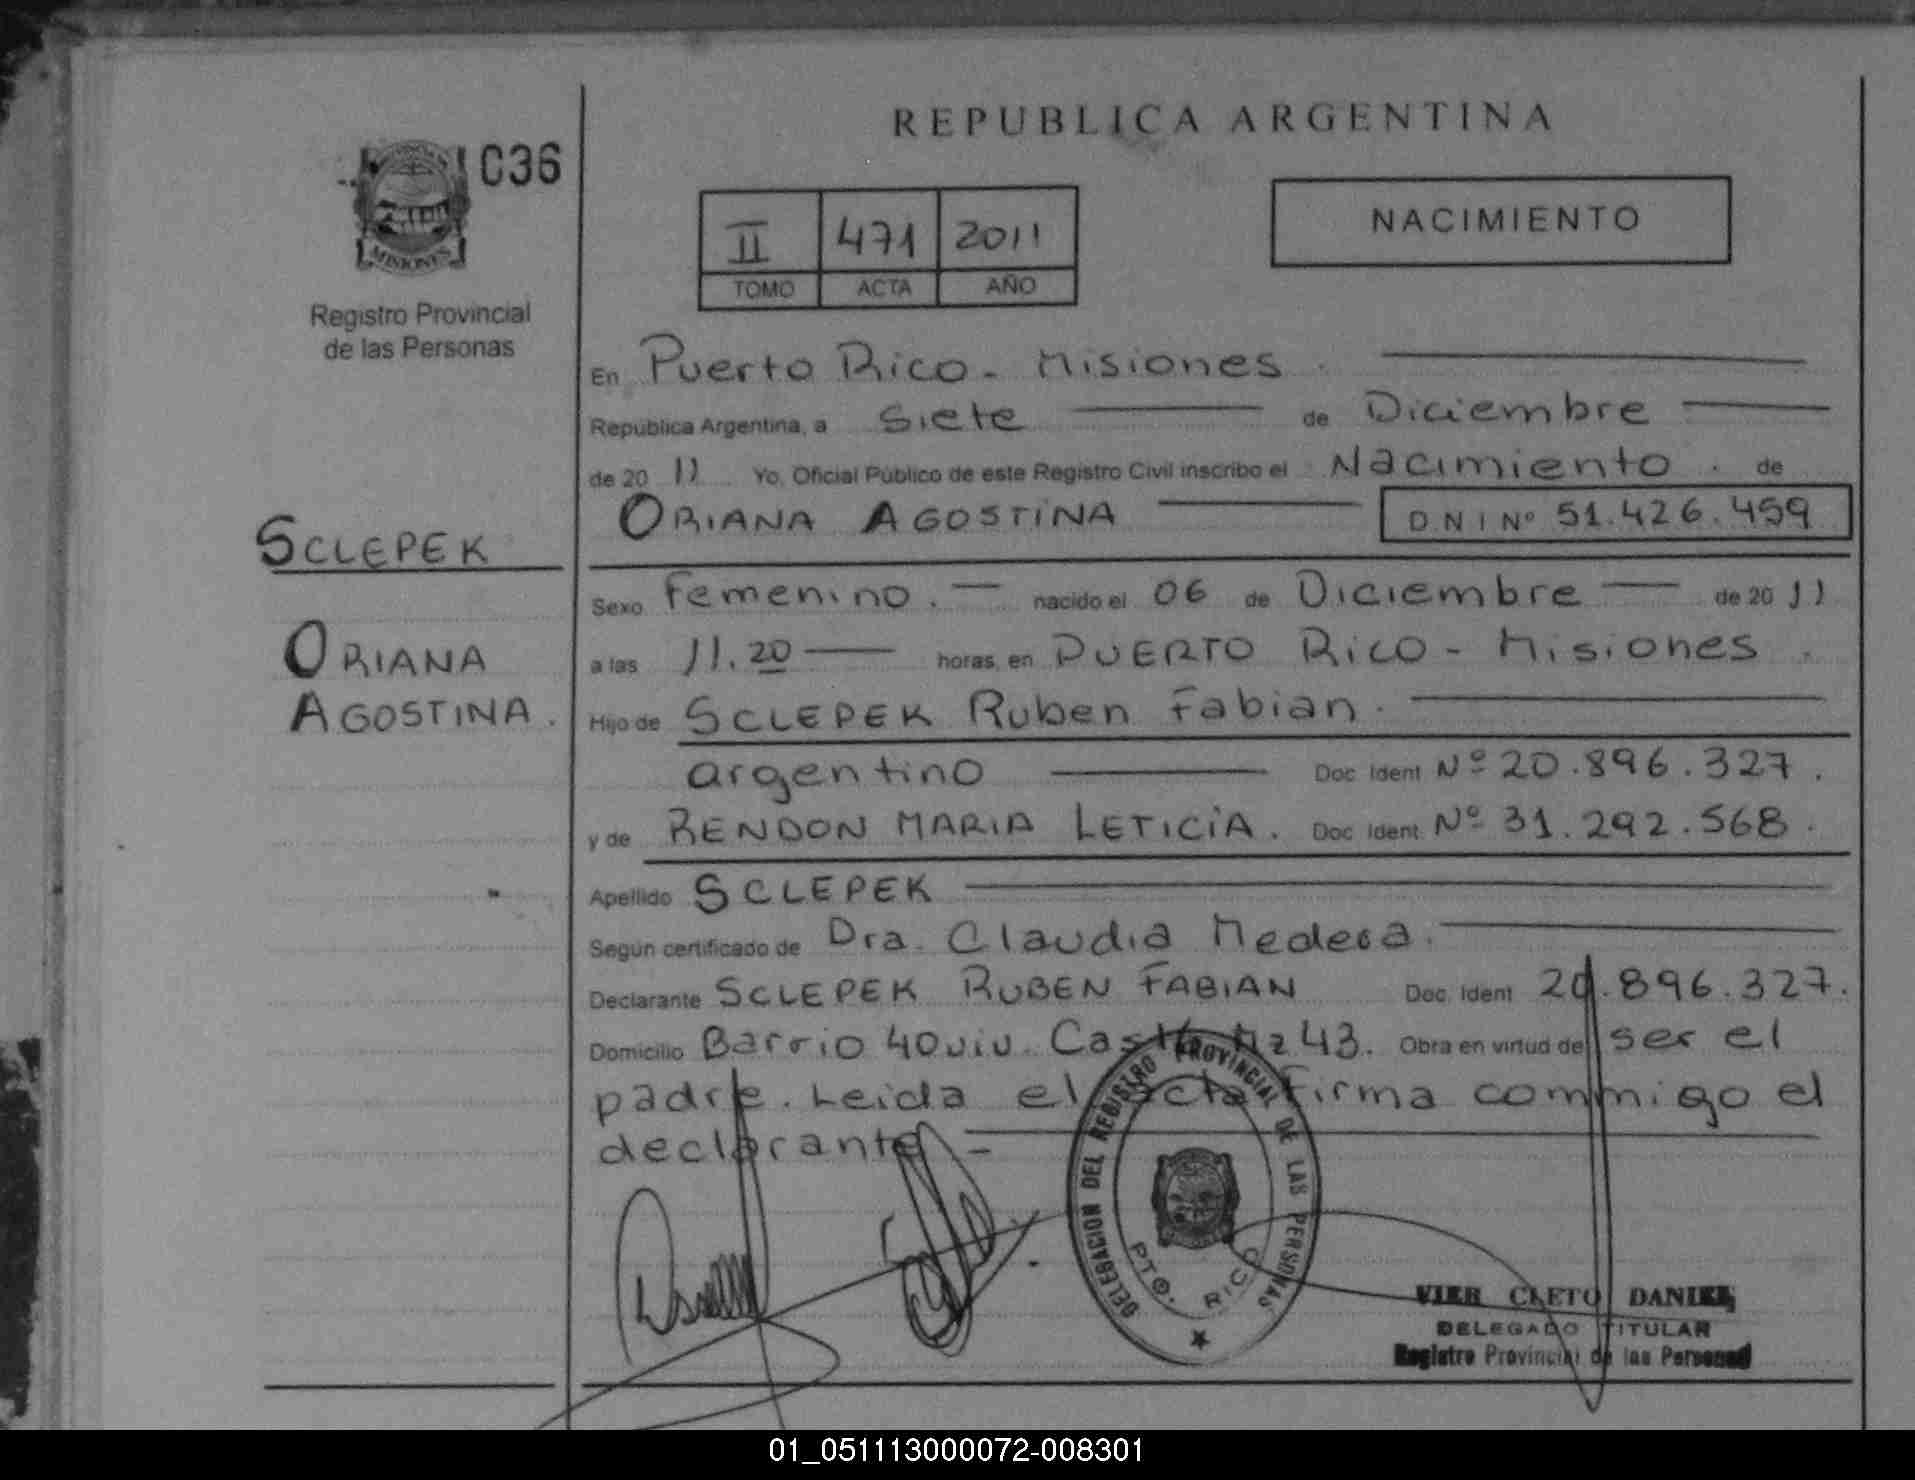 REPUBLICA ARGENTINA
C36
MISIONES
Registro Provincial
de las Personas
II 471 2011
TOMO ACTA AÑO
NACIMIENTO
En Puerto Rico - Misiones.
Republica Argentina, a Siete de Diciembre
de 20 11 Yo, Oficial Público de este Registro Civil inscribo el Nacimiento. de
ORIANA AGOSTINA DNI Nº 51.426.459
SCLEPEK
ORIANA
AGOSTINA.
Sexo Femenino. nacido el 06 de Diciembre de 20 11
a las 11.20 horas, en PUERTO RICO - Misiones.
Hijo de SCLEPEK Ruben Fabian.
argentino Doc Ident Nº 20.896.327.
y de RENDON MARIA LETICIA. Doc Ident. Nº 31.292.568.
Apellido SCLEPEK
Según certificado de Dra. Claudia
Declarante SCLEPEK RUBEN FABIAN Doc. Ident 20.896.327.
Domicilio Barrio 40 viv. Mz 43. Obra en virtud de ser el
padre. Leida el acta firma commigo el
declarante -
DELEGACION DEL REGISTRO PROVINCIAL DE LAS PERSONAS
PTO. RICO
VIER CLETO DANIEL
DELEGADO TITULAR
Registro Provincial de las Personas
01_051113000072-008301